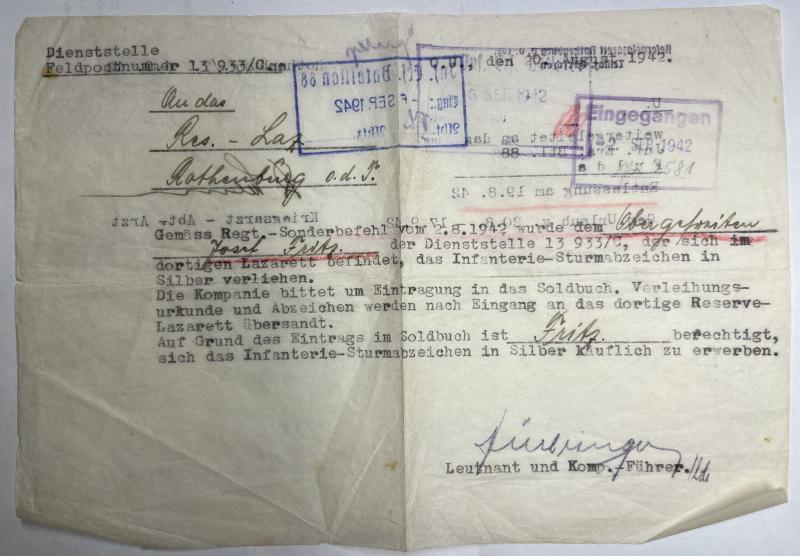 Dienststelle
Feldpostnummer 13 933/C
O.U., den 20. August 1942.
An das
Res. - Laz
Rothenburg o.d.T.
Inf. Ers. Bataillon 88
Eing.: - 5. SEP. 1942
Abt:
Eingegangen
- 2. SEP. 1942
2581
U.
weitergeleitet an das
88
Entlassung am 19.8. 42
Kriegsarzt - Abt- Arzt
Gemäss Regt.-Sonderbefehl vom 2.8.1942 wurde dem Obergefreiten
Josef Fritz. der Dienststelle 13 933/C, der sich im
dortigen Lazarett befindet, das Infanterie-Sturmabzeichen in
Silber verliehen.
Die Kompanie bittet um Eintragung in das Soldbuch. Verleihungs-
urkunde und Abzeichen werden nach Eingang an das dortige Reserve-
Lazarett übersandt.
Auf Grund des Eintrags im Soldbuch ist Fritz. berechtigt,
sich das Infanterie-Sturmabzeichen in Silber käuflich zu erwerben.
Leutnant und Komp.-Führer.